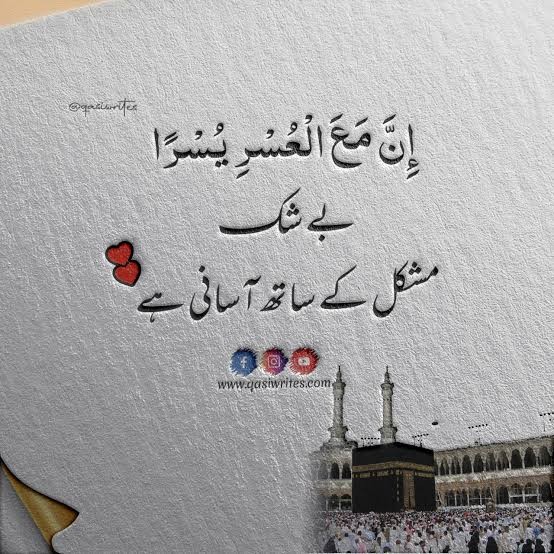 @qasiwrites
إِنَّ مَعَ الْعُسْرِ يُسْرًا
بے شک
مشکل کے ساتھ آسانی ہے
www.qasiwrites.com